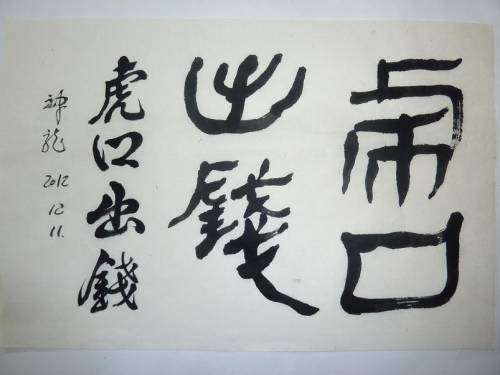 虎口
出錢
虎口出錢
神龍 2012.12.11.